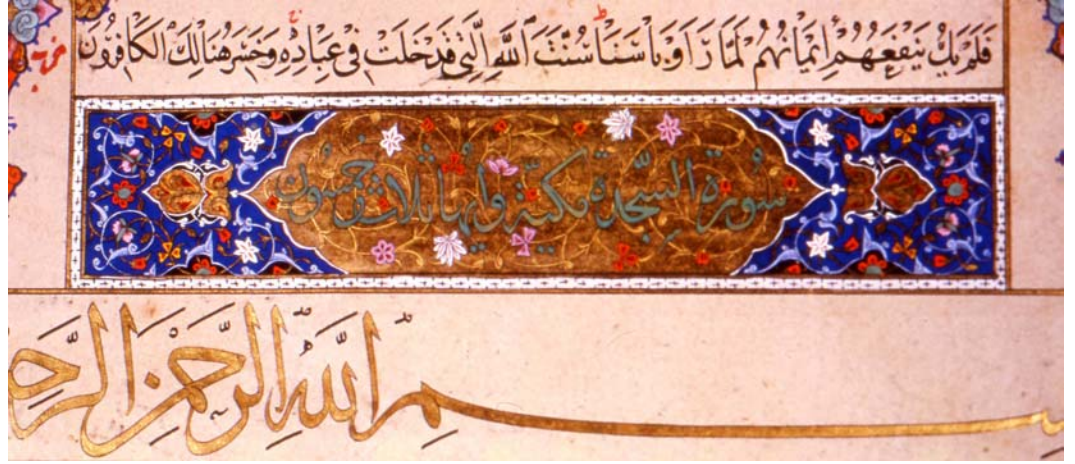 فَلَمْ يَكُ يَنْفَعُهُمْ إِيمَانُهُمْ لَمَّا رَأَوْا بَأْسَنَا سُنَّتَ اللَّهِ الَّتِي قَدْ خَلَتْ فِي عِبَادِهِ وَخَسِرَ هُنَالِكَ الْكَافِرُونَ
سُورَة السَّجْدَة مكيّة وايها ثلاث وخمسون
بسم الله الرحمن الرحي